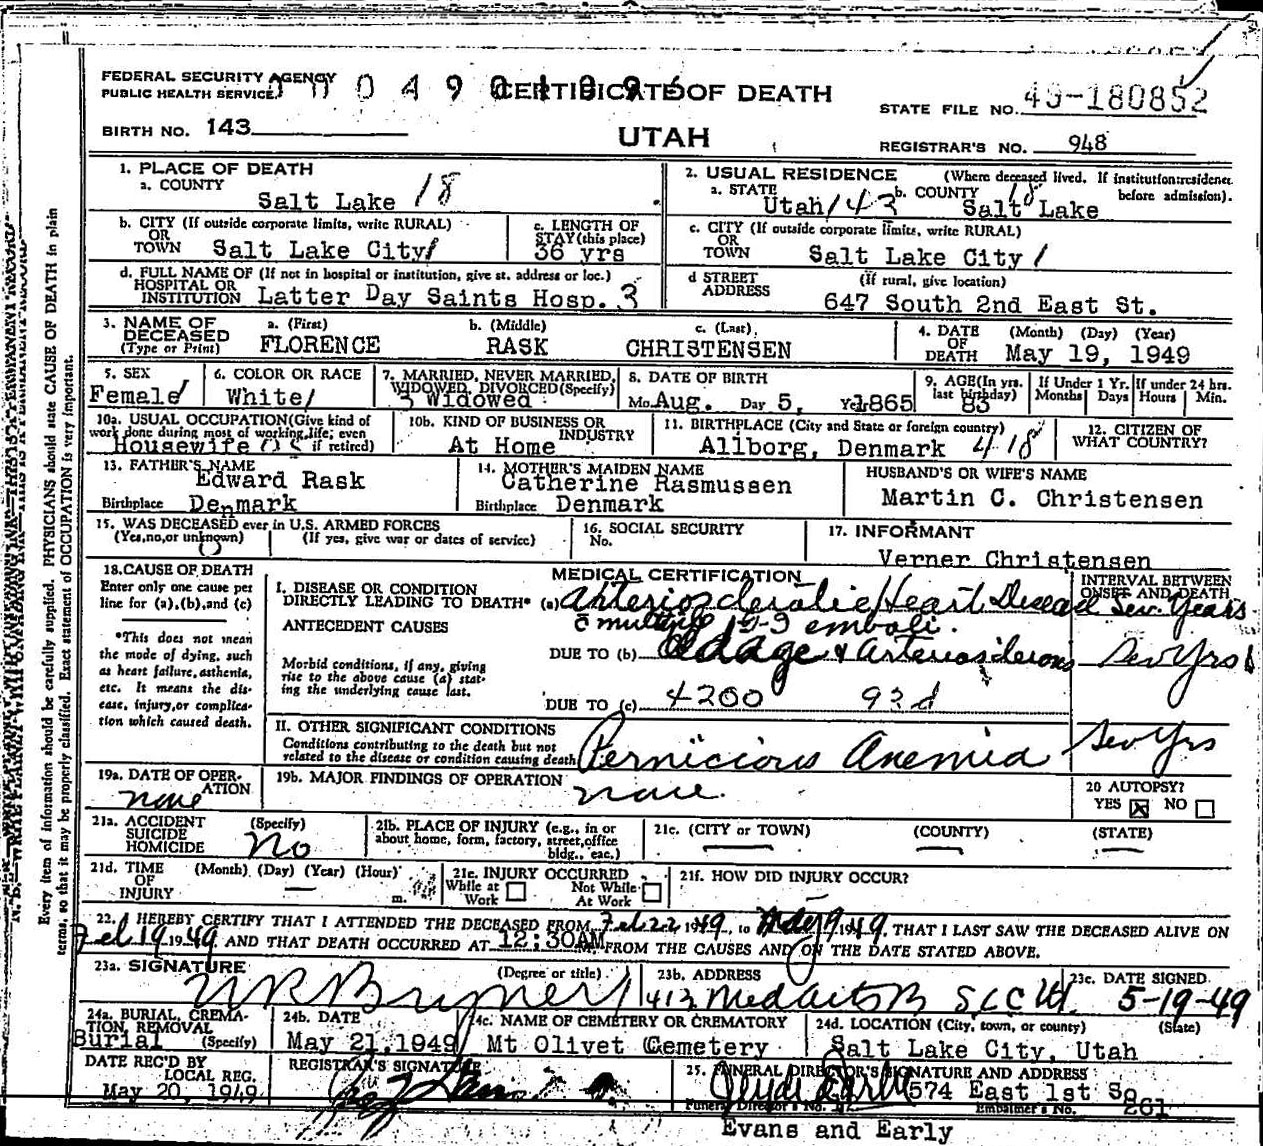 FEDERAL SECURITY AGENCY
PUBLIC HEALTH SERVICE
CERTIFICATE OF DEATH
STATE FILE NO. 49-180852
BIRTH NO. 143
UTAH
REGISTRAR'S NO. 948
1. PLACE OF DEATH
a. COUNTY
Salt Lake 18
2. USUAL RESIDENCE (Where deceased lived. If institution: residence before admission).
a. STATE Utah/43 b. COUNTY 18 Salt Lake
b. CITY (If outside corporate limits, write RURAL)
OR
TOWN Salt Lake City/
c. LENGTH OF
STAY (this place)
36 yrs
c. CITY (If outside corporate limits, write RURAL)
OR
TOWN Salt Lake City/
d. FULL NAME OF (If not in hospital or institution, give st. address or loc.)
HOSPITAL OR
INSTITUTION Latter Day Saints Hosp. 3
d STREET (If rural, give location)
ADDRESS
647 South 2nd East St.
3. NAME OF
DECEASED
(Type or Print)
a. (First) b. (Middle) c. (Last)
FLORENCE RASK CHRISTENSEN
4. DATE (Month) (Day) (Year)
OF
DEATH May 19, 1949
5. SEX
Female/
6. COLOR OR RACE
White/
7. MARRIED, NEVER MARRIED,
WIDOWED, DIVORCED (Specify)
3 Widowed
8. DATE OF BIRTH
Mo. Aug. Day 5, Year 1865
9. AGE (In yrs.
last birthday)
83
If Under 1 Yr.
Months Days
If under 24 hrs.
Hours Min.
10a. USUAL OCCUPATION (Give kind of
work done during most of working life, even
if retired)
Housewife
10b. KIND OF BUSINESS OR
INDUSTRY
At Home
11. BIRTHPLACE (City and State or foreign country)
Allborg, Denmark 418
12. CITIZEN OF
WHAT COUNTRY?
13. FATHER'S NAME
Edward Rask
Birthplace Denmark
14. MOTHER'S MAIDEN NAME
Catherine Rasmussen
Birthplace Denmark
HUSBAND'S OR WIFE'S NAME
Martin C. Christensen
15. WAS DECEASED ever in U.S. ARMED FORCES
(Yes, no, or unknown) (If yes, give war or dates of service)
0
16. SOCIAL SECURITY
No.
17. INFORMANT
Verner Christensen
18. CAUSE OF DEATH
Enter only one cause per
line for (a), (b), and (c)
*This does not mean
the mode of dying, such
as heart failure, asthenia,
etc. It means the dis-
ease, injury, or complica-
tion which caused death.
MEDICAL CERTIFICATION
I. DISEASE OR CONDITION
DIRECTLY LEADING TO DEATH* (a) Arteriosclerotic Heart Disease
c multiple emboli.
ANTECEDENT CAUSES
DUE TO (b) Old age & Arteriosclerosis
Morbid conditions, if any, giving
rise to the above cause (a) stat-
ing the underlying cause last.
DUE TO (c) 4200 93d
INTERVAL BETWEEN
ONSET AND DEATH
Sev. Years
Sev Yrs
II. OTHER SIGNIFICANT CONDITIONS
Conditions contributing to the death but not
related to the disease or condition causing death
Pernicious Anemia
Sev Yrs
19a. DATE OF OPER-
ATION
none
19b. MAJOR FINDINGS OF OPERATION
none.
20 AUTOPSY?
YES ☒ NO ☐
21a. ACCIDENT (Specify)
SUICIDE
HOMICIDE
No
21b. PLACE OF INJURY (e.g., in or
about home, form, factory, street, office
bldg., eac.)
21c. (CITY or TOWN) (COUNTY) (STATE)
21d. TIME (Month) (Day) (Year) (Hour)
OF
INJURY m.
21e. INJURY OCCURRED
While at Work ☐ Not While At Work ☐
21f. HOW DID INJURY OCCUR?
22. I HEREBY CERTIFY THAT I ATTENDED THE DECEASED FROM Feb 22 1949, to May 19 1949, THAT I LAST SAW THE DECEASED ALIVE ON
19 1949 AND THAT DEATH OCCURRED AT 12:30AM. FROM THE CAUSES AND ON THE DATE STATED ABOVE.
23a. SIGNATURE (Degree or title)
23b. ADDRESS
413 Med Arts B S.L.C Ut.
23c. DATE SIGNED
5-19-49
24a. BURIAL, CREMA-
TION, REMOVAL
(Specify)
Burial
24b. DATE
May 21, 1949
24c. NAME OF CEMETERY OR CREMATORY
Mt Olivet Cemetery
24d. LOCATION (City, town, or county) (State)
Salt Lake City, Utah
DATE REC'D BY
LOCAL REG.
May 20, 1949
REGISTRAR'S SIGNATURE
25. FUNERAL DIRECTOR'S SIGNATURE AND ADDRESS
574 East 1st So
Funeral Director's No. Embalmer's No. 261
Evans and Early
Every item of information should be carefully supplied. PHYSICIANS should state CAUSE OF DEATH in plain
terms, so that it may be properly classified. Exact statement of OCCUPATION is very important.